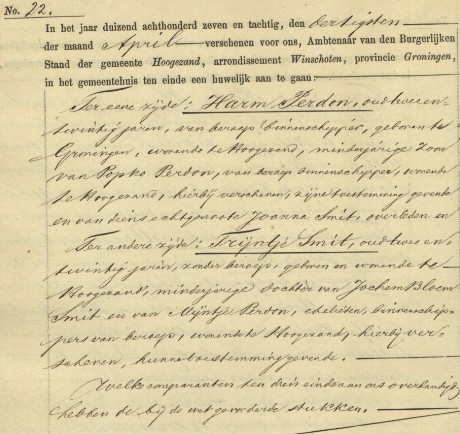 No. 22.
In het jaar duizend achthonderd zeven en tachtig, den dertigsten
der maand April verschenen voor ons, Ambtenaar van den Burgerlijken
Stand der gemeente Hoogezand, arrondissement Winschoten, provincie Groningen,
in het gemeentehuis ten einde een huwelijk aan te gaan:
Ter eene zijde: Harm Perdon, oud twee en
twintig jaren, van beroep binnenschipper, geboren te
Groningen, wonende te Hoogezand, minderjarige zoon
van Popko Perdon, van beroep binnenschipper, wonende
te Hoogezand, hierbij verschenen, zijne toestemming gevende
en van diens echtgenoote Joanna Smit, overleden en
Ter andere zijde: Trijntje Smit, oud twee en
twintig jaren, zonder beroep, geboren en wonende te
Hoogezand, minderjarige dochter van Jochem Bloem
Smit en van Mijntje Perdon, ehelieden, binnenschip-
pers van beroep, wonende te Hoogezand, hierbij ver-
schenen, hunne toestemming gevende.
Welke comparanten ten dien einde aan ons overhandigd
hebben de bij de wet gevorderde stukken.